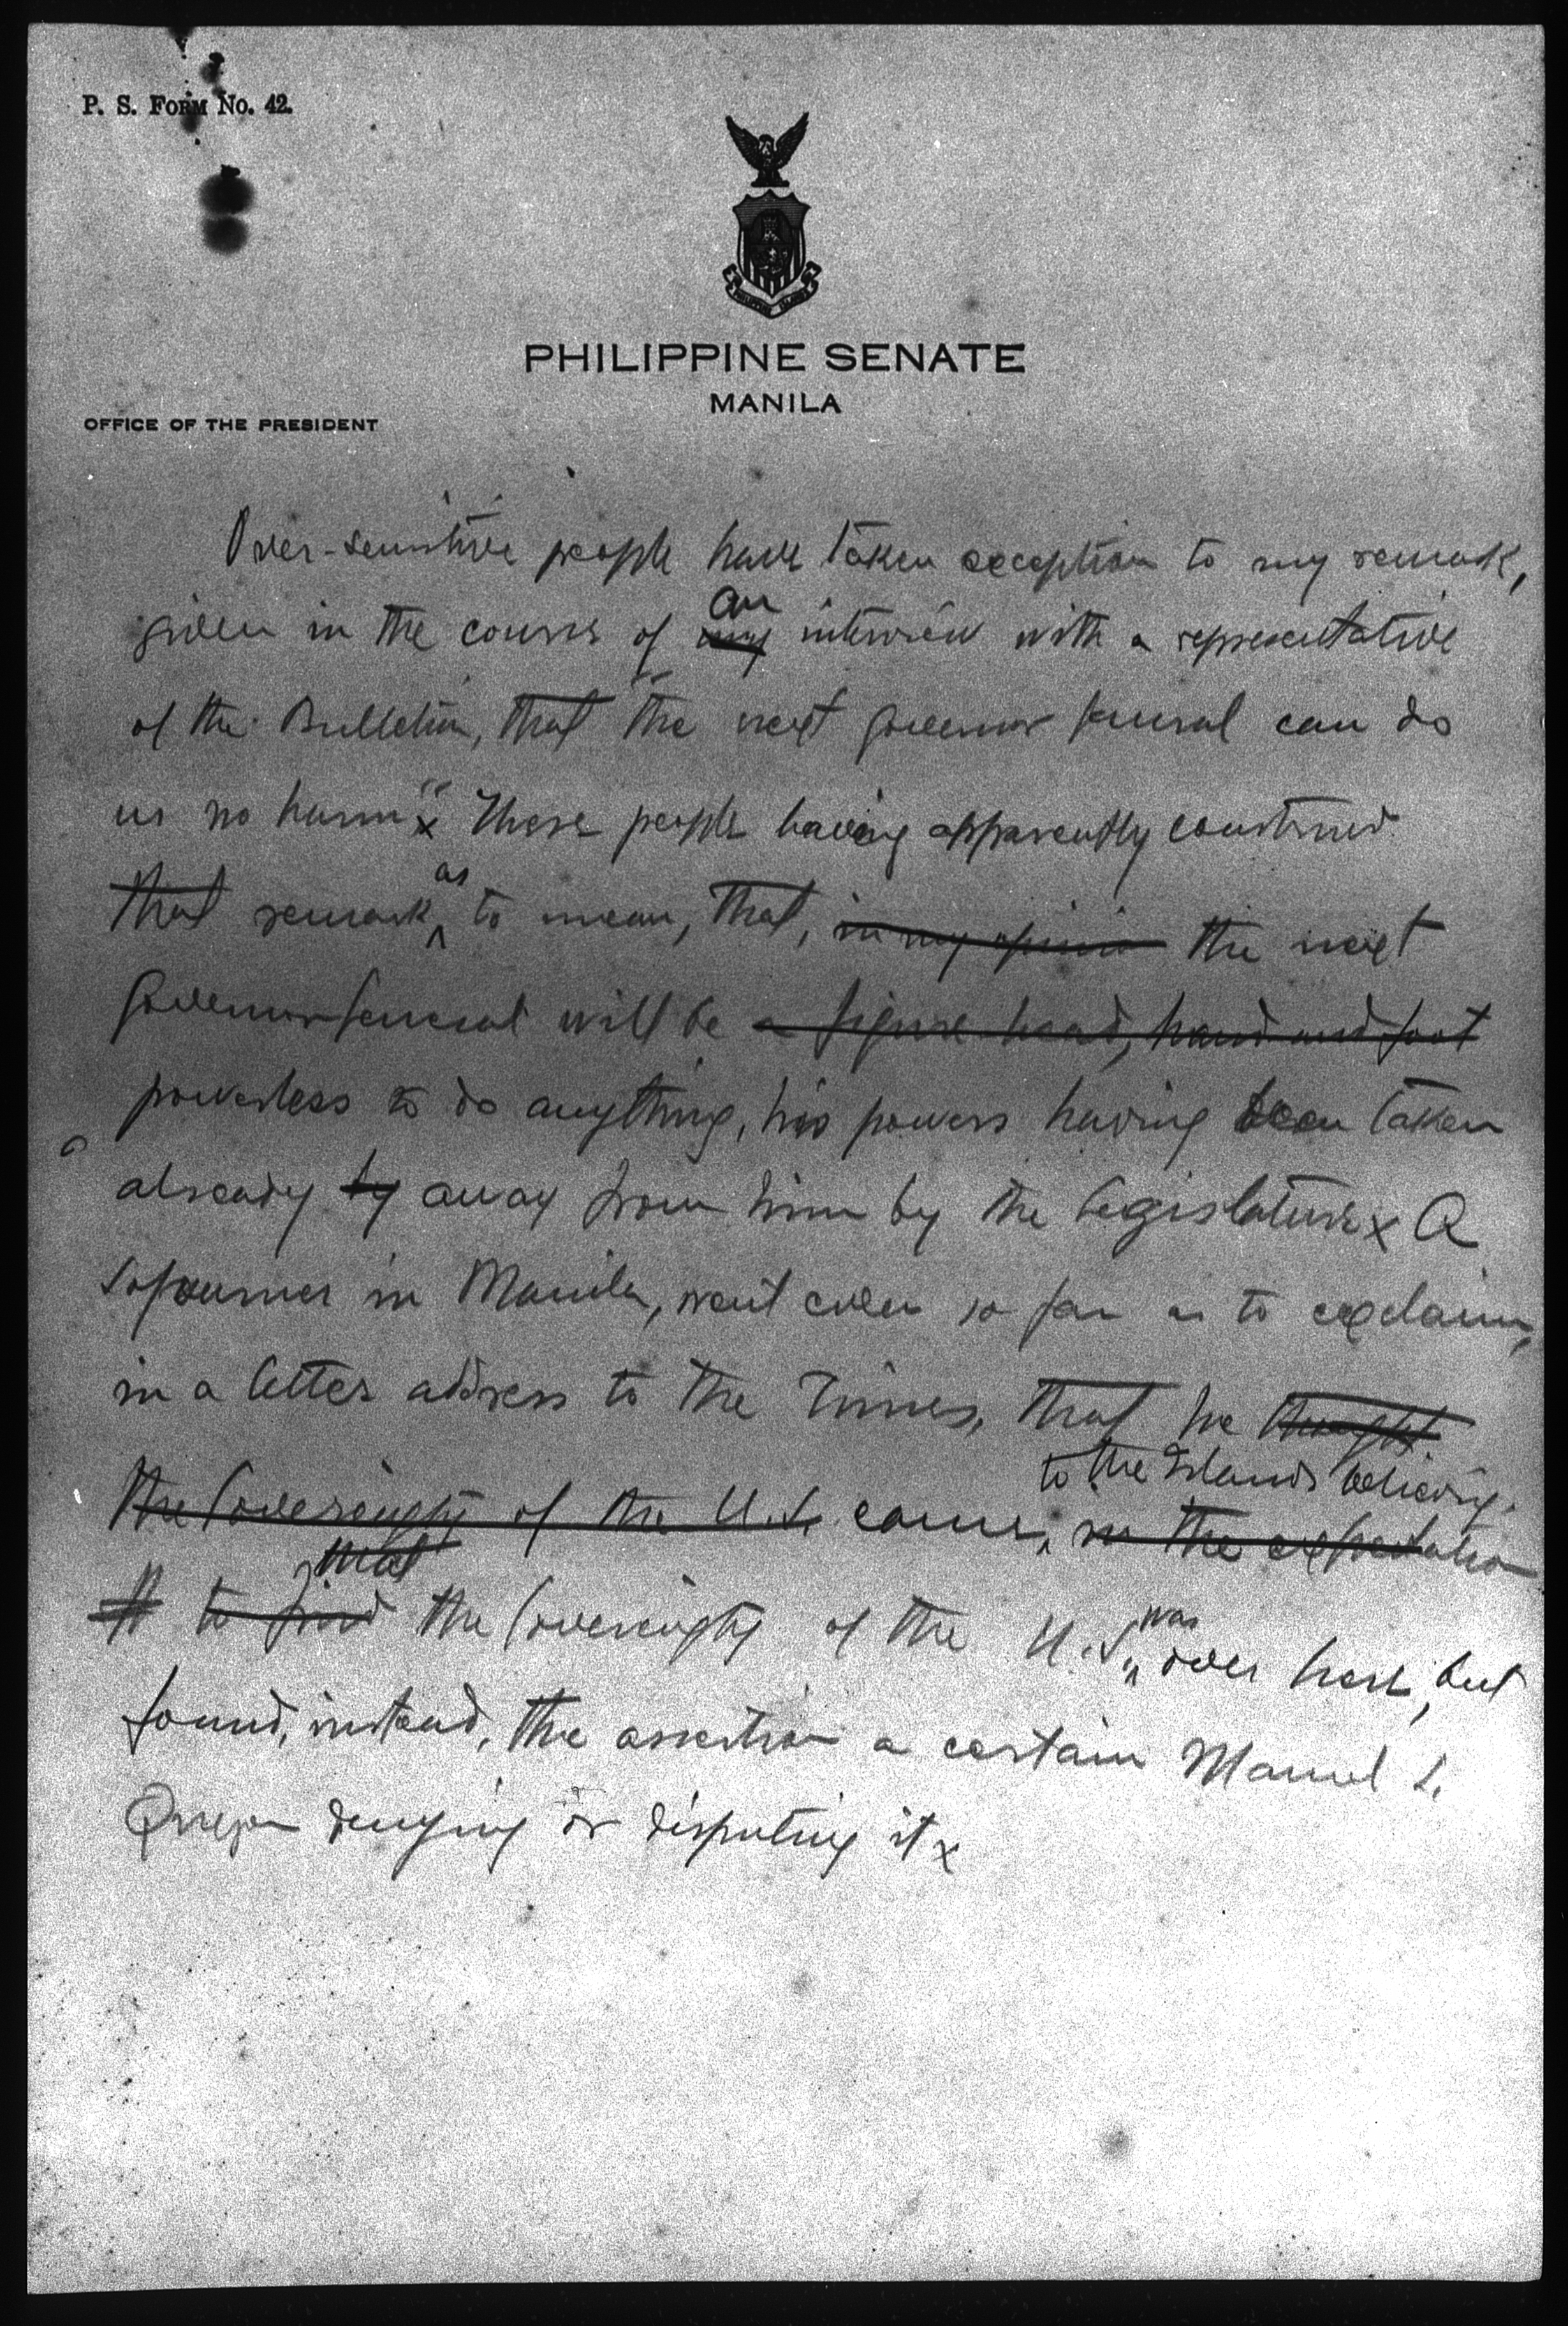 P. S. FORM NO. 42.
PHILIPPINE ISLANDS
PHILIPPINE SENATE
MANILA
OFFICE OF THE PRESIDENT
Over-sensitive people have taken exception to my remark,
an
given in the course of my interview with a representative
of the Bulletin, that "the next governor general can do
us no harm"x These people having apparently construed
as
that remark ^ to mean, that, in my opinion the next
Governor General will be a figure head, hand and foot
powerless to do anything, his powers having been taken
already by away from him by the legislature x A
sojourner in Manila, went even so far as to exclaim,
in a letter address to the Times, that he thought
to the Islands believing
the Sovereignty of the U.S. came, in the expectation
that
to find the Sovereignty of the U.S. was over here, but
found, instead, the assertion a certain Manuel L.
Quezon denying or disputing it x